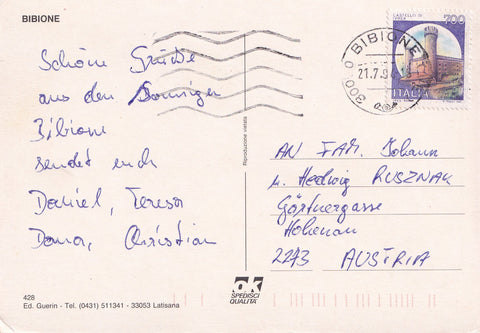 BIBIONE
Schöne Grüße
aus dem sonnigen
Bibione
sendet euch
Daniel, Teresa
Christian
428
Ed. Guerin - Tel. (0431) 511341 - 33053 Latisana
Riproduzione vietata
ok
SPEDISCI
QUALITÀ
CASTELLO DI
700
ITALIA
BIBIONE
21.7.94
AN FAM. Johann
u. Hedwig RUSZNAK
Gärtnergasse
Hohenau
2273 AUSTRIA